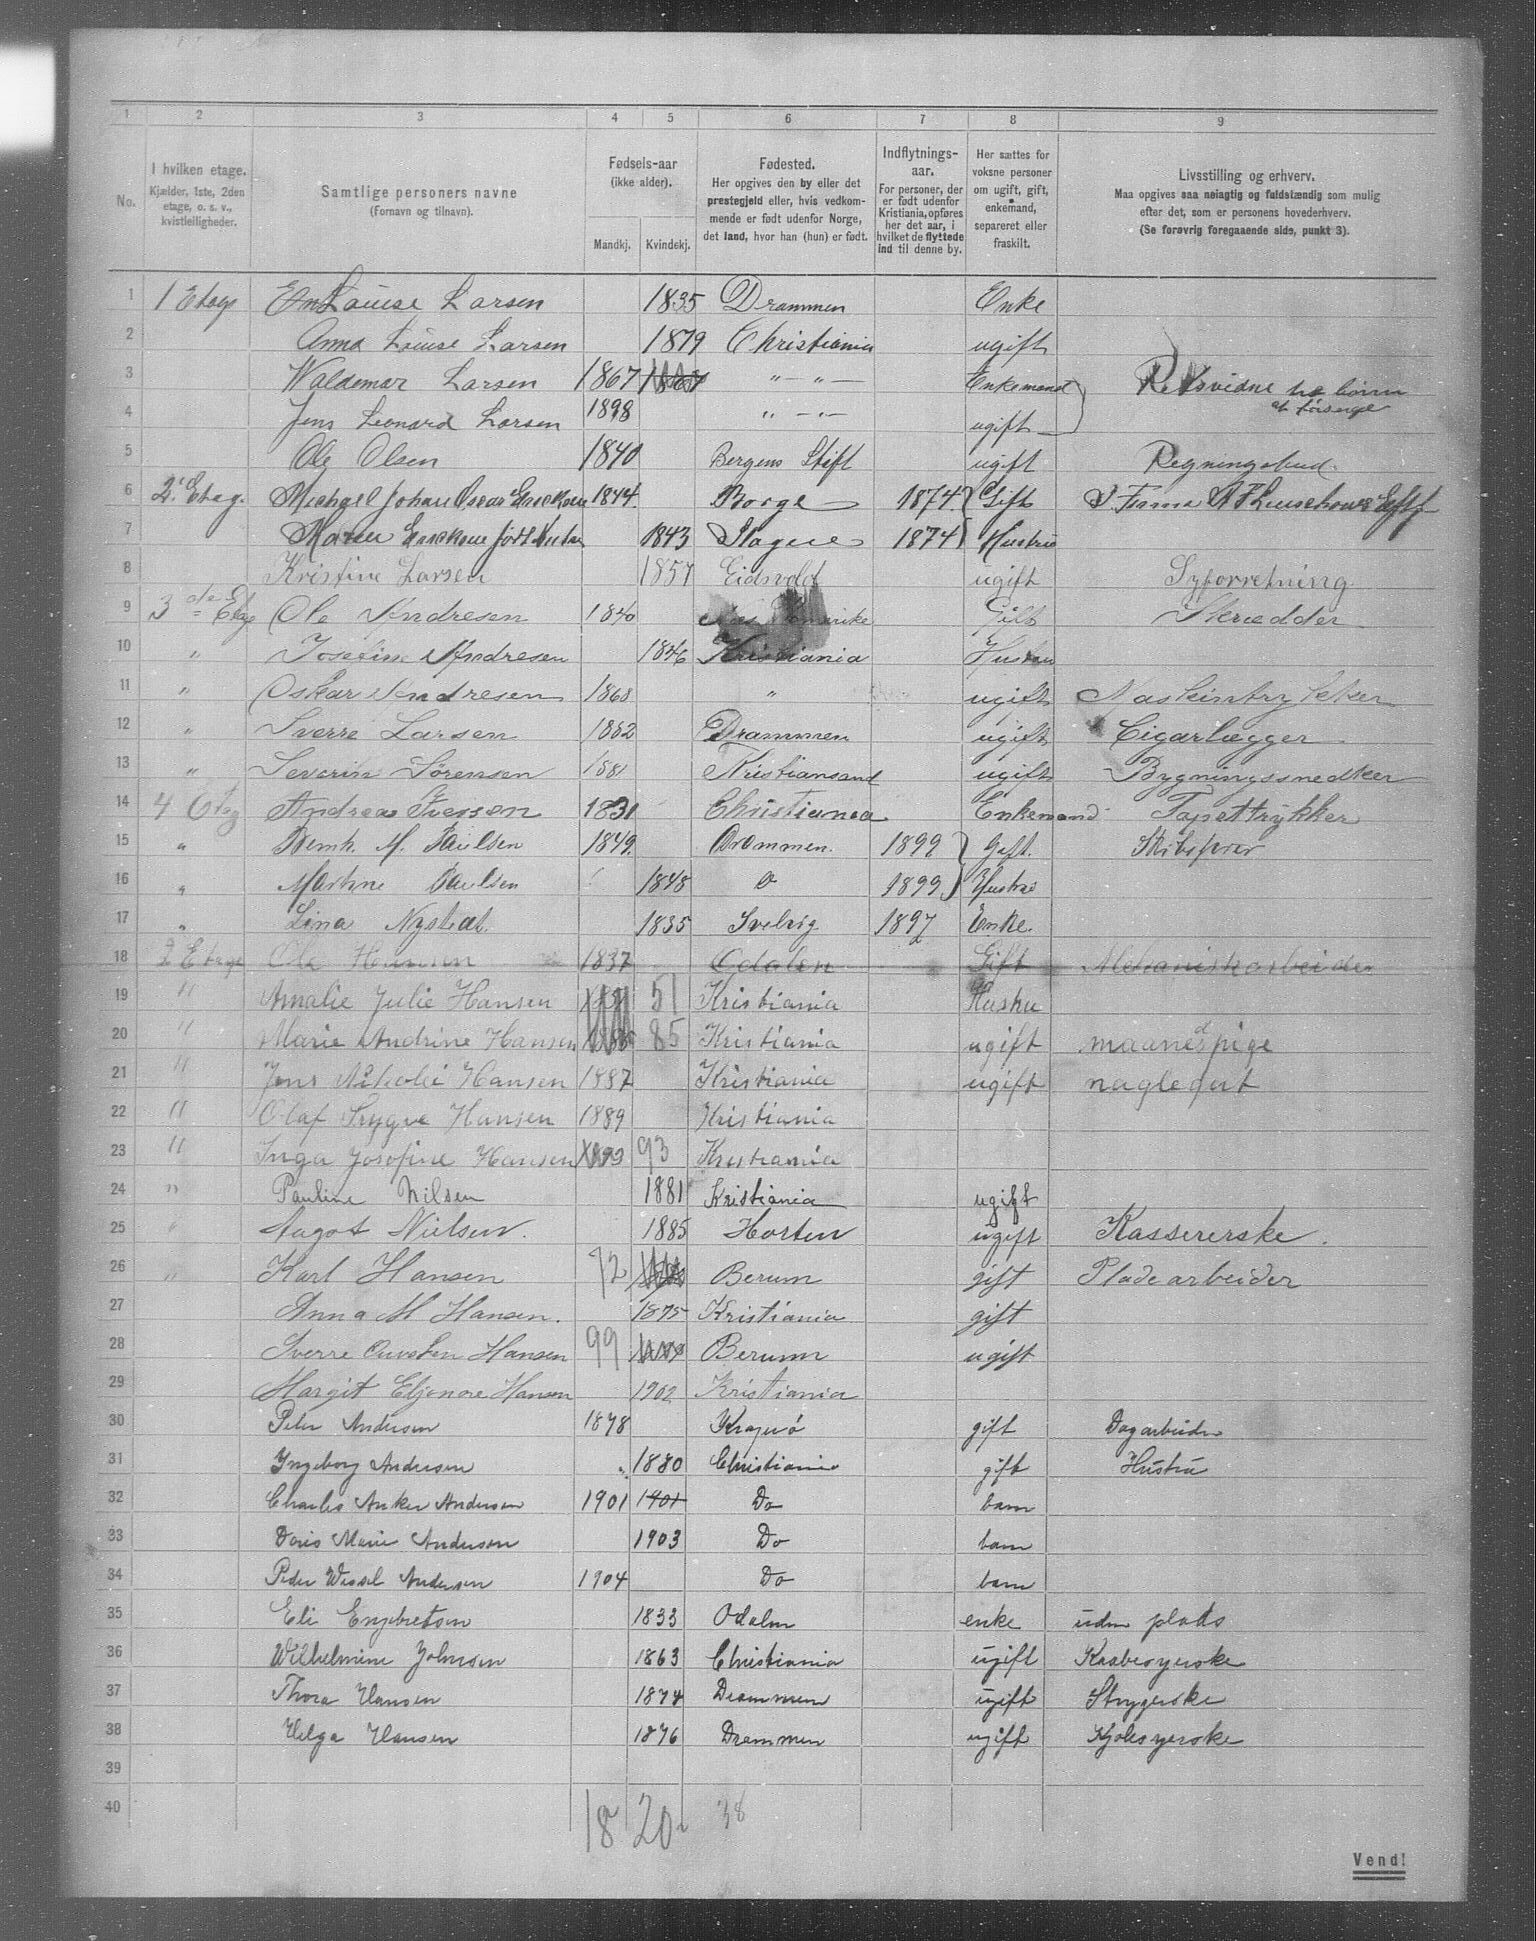 1 2 3 4 5 6 7 8 9
No.
I hvilken etage.
Kjælder, 1ste, 2den
etage, o. s. v.,
kvistleiligheder.
Samtlige personers navne
(Fornavn og tilnavn).
Fødsels-aar
(ikke alder).
Mandkj. Kvindekj.
Fødested.
Her opgives den by eller det
prestegjeld eller, hvis vedkom-
mende er født udenfor Norge,
det land, hvor han (hun) er født.
Indflytnings-
aar.
For personer, der
er født udenfor
Kristiania, opføres
her det aar, i
hvilket de flyttede
ind til denne by.
Her sættes for
voksne personer
om ugift, gift,
enkemand,
separeret eller
fraskilt.
Livsstilling og erhverv.
Maa opgives saa nøiagtig og fuldstændig som mulig
efter det, som er personens hovederhverv.
(Se forøvrig foregaaende side, punkt 3).
1 1 Etage Louise Larsen 1835 Drammen Enke
2 Anna Louise Larsen 1879 Christiania ugift
3 Waldemar Larsen 1867 1867 " — " — Enkemand Retsvidne
4 Jens Leonard Larsen 1898 " — " — ugift
5 Ole Olsen 1840 Bergens Stift ugift Regningsbud.
6 2 Etag. Michael Johan Oscar Ericksen 1844. Borge 1874 Gift I Firma
7 født 1843 1874 Hustru
8 Kristine Larsen 1857 Eidsvold ugift Syforretning
9 3 de Etag Ole Andresen 1840 Nes Romerike Gift Skrædder
10 " Josefine Andresen 1846 Kristiania Hustru
11 " Oskar Andresen 1868 " ugift Maskintrykker
12 " Sverre Larsen 1882 Drammen ugift Cigarlægger
13 " Severin Sørensen 1881 Kristiansand ugift Bygningssnedker
14 4 Etag Andreas Iversen 1831 Christiania Enkemand Tapettrykker
15 " Bernh. M. Paulsen 1849. Drammen. 1899 Gift. Skibsfører
16 " Martine Paulsen 1848 1899 Hustru
17 " Lina Nystedt. 1835 Svelvig 1897 Enke.
18 2 Etage Ole Hansen 1837 Odalen Gift Mekaniskarbeider
19 " Amalie Julie Hansen 51 Kristiania Hustru
20 " Marie Andrine Hansen 1885 85 Kristiania ugift maanedspige
21 " Jens Nikolai Hansen 1887 Kristiania ugift naglegut
22 " Olaf Trygve Hansen 1889 Kristiania
23 " Inga Josefine Hansen 1893 93 Kristiania
24 " Pauline Nilsen 1881 Kristiania ugift
25 " Aagot Nielsen. 1885 Horten ugift Kassererske.
26 " Karl Hansen 72 Berum gift Pladearbeider
27 Anna M Hansen. 1875 Kristiania gift
28 Sverre Hansen 99 Berum ugift
29 Margit Eljenore Hansen 1902 Kristiania
30 Peter Andersen 1878 Kragerø gift Dagarbeider
31 Ingeborg Andersen 1880 Christiania gift Hustru
32 Charles Anker Andersen 1901 1901 Do barn
33 Doris Marie Andersen 1903 Do barn
34 Peder Wessel Andersen 1904 Do barn
35 Eli Engebretsen 1833 Odalen enke uden plads
36 Wilhelmine Johnsen 1863 Christiania ugift Kaabesyerske
37 Thora Hansen 1874 Drammen ugift Strygerske
38 Helga Hansen 1876 Drammen ugift Kjolesyerske
39
40
18 20 38
Vend!